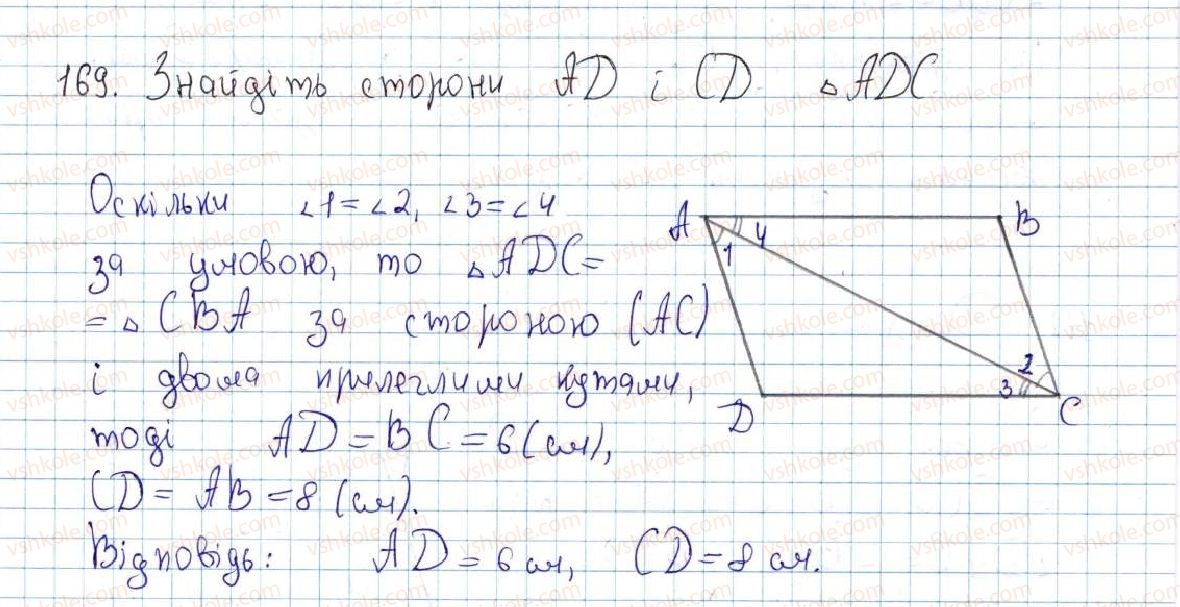 169. Знайдіть сторони AD і CD △ADC
Оскільки ∠1=∠2, ∠3=∠4
за умовою, то △ADC=
=△CBA за стороною (AC)
і двома прилеглими кутами,
тоді AD=BC=6(см),
CD=AB=8(см).
Відповідь: AD=6см, CD=8см.
A
B
4
1
2
3
D
C
vshkole.com